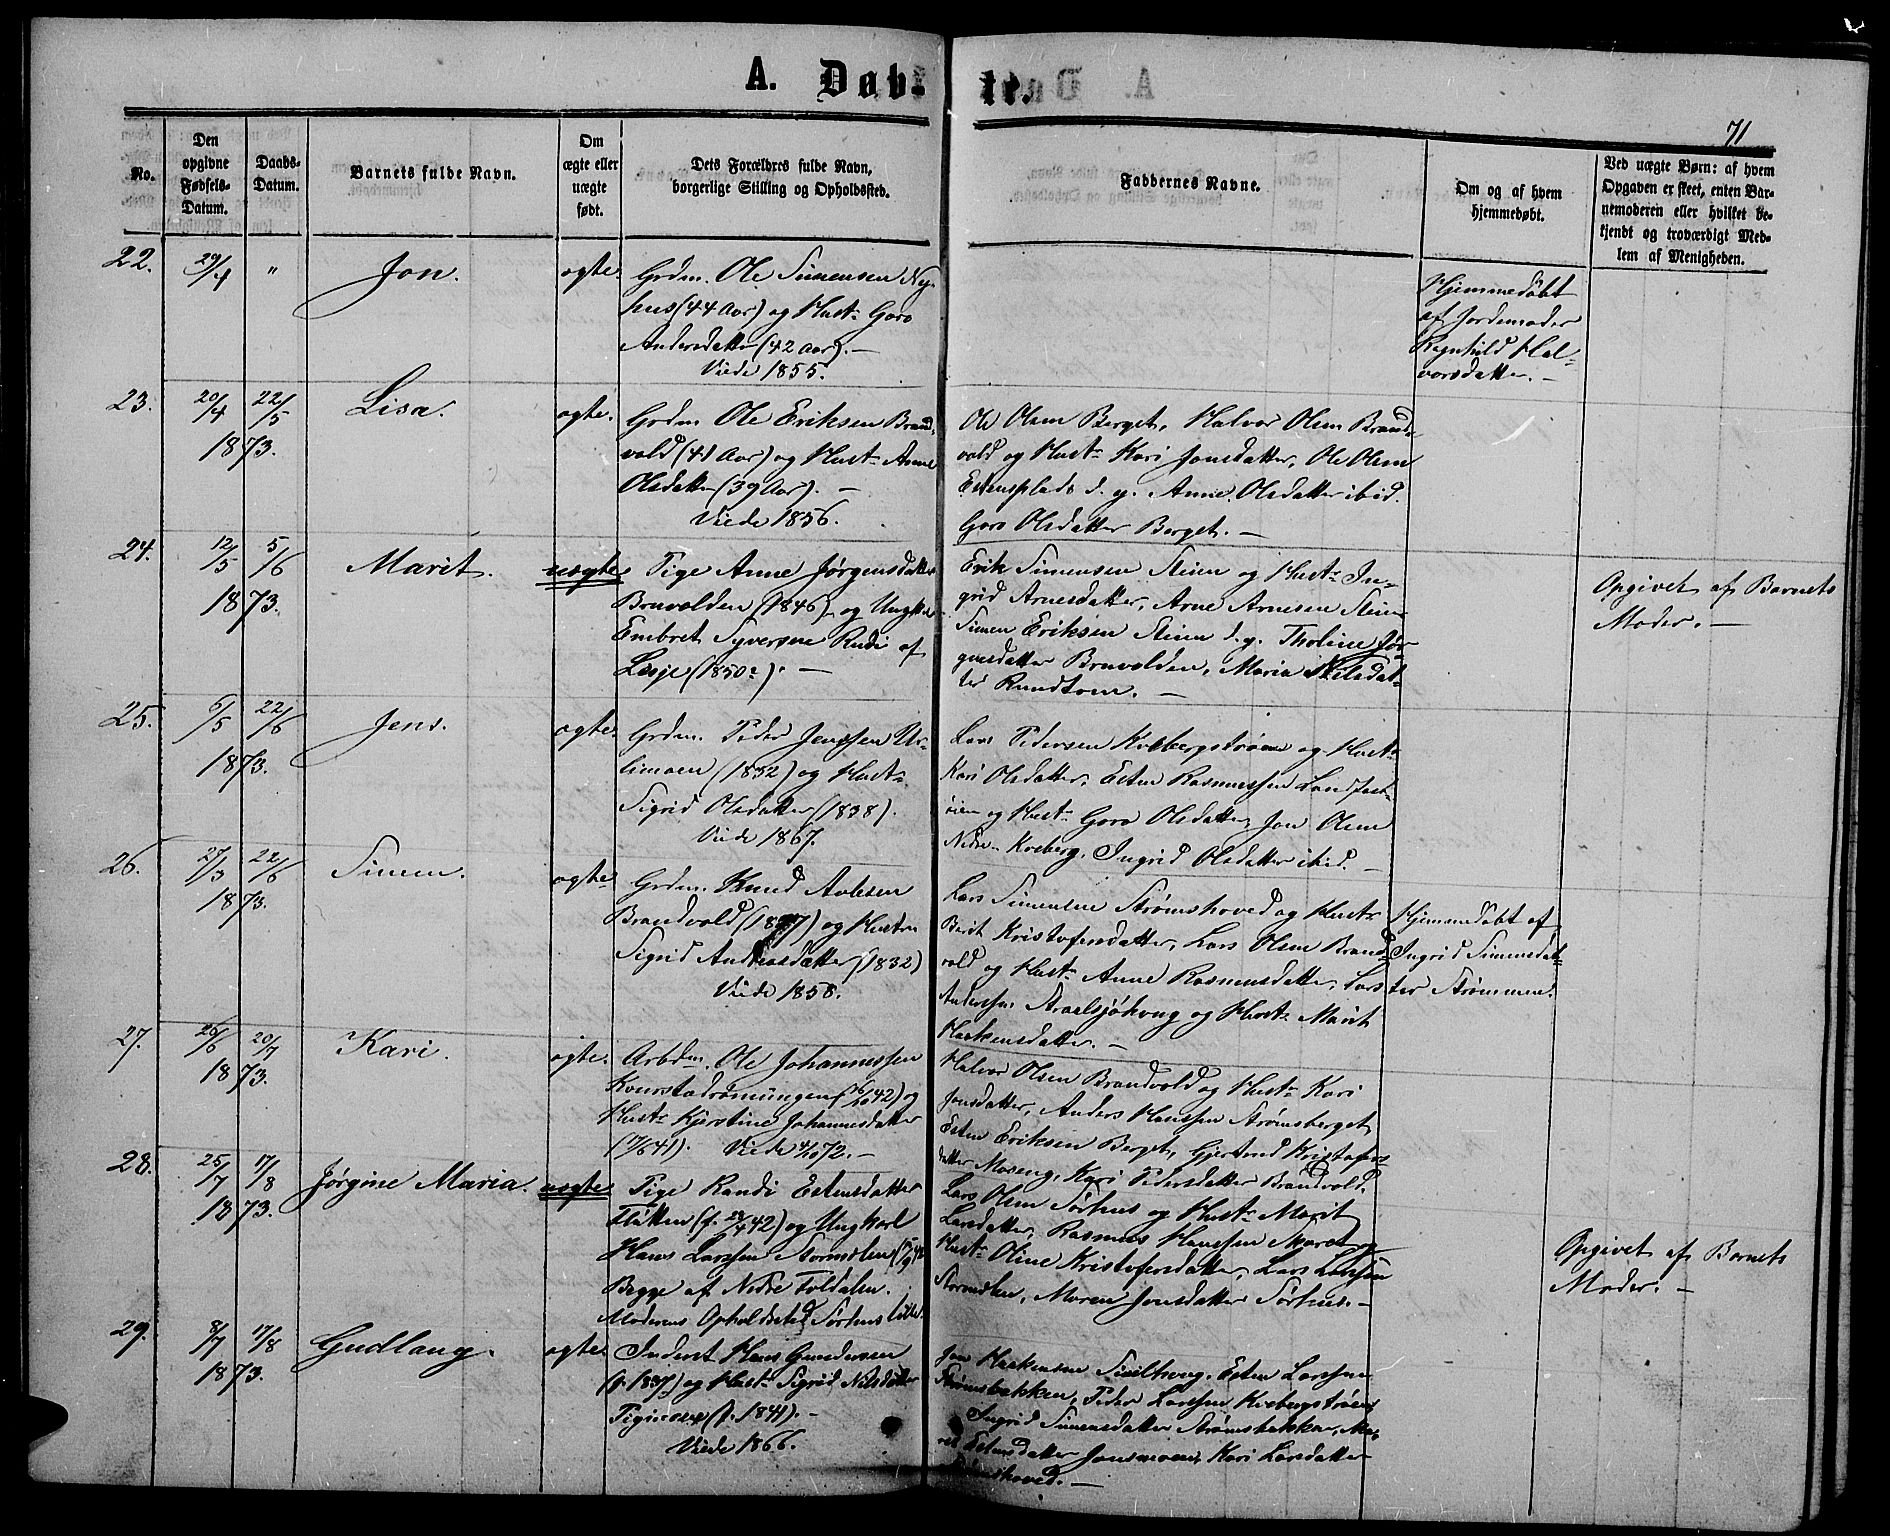 A. Døb- te.
71
No.
Den opgivne Fødsels-Datum.
Daabs-Datum.
Barnets fulde Navn.
Om ægte eller uægte født.
Dets Forældres fulde Navn, borgerlige Stilling og Opholdssted.
Faddernes Navne.
Om og af hvem hjemmedøbt.
Ved uægte Børn: af hvem Opgaven er skeet, enten Barnemoderen eller hvilket bekjendt og troværdigt Medlem af Menigheden.
22. 29/4 " Jon. ægte.
Grdm. Ole Simensen Ny-
hus (44 Aar) og Hustr. Goro
Andersdatter (42 Aar). —
Viede 1855.
Hjemmedøbt
af Jordemoder
Ragnhild Hal-
vorsdatter. —
23. 20/4 22/5 1873. Lisa. ægte.
Grdm. Ole Eriksen Brand-
vold (41 Aar) og Hustr. Anne
Olsdatter (39 Aar). —
Viede 1856.
Ole Olsen Berget, Halvor Olsen Brand-
vold og Hustr. Kari Jonsdatter, Ole Olsen
Estensplads d. y. Anne Olsdatter ibid.
Goro Olsdatter Berget. —
24. 12/5 5/6 1873. Marit. uægte.
Pige Anne Jørgensdatter
Bruvolden (1846) og Ungkarl
Embret Syversen Rudi af
Lesje (1850). —
Erik Simensen Steien og Hustr. In-
grid Arnesdatter, Arne Arnesen Steien
Simen Eriksen Steien d. y. Tholine Jør-
gensdatter Bruvolden, Maria Nilsdat-
ter Rundtom. —
Opgivet af Barnets
Moder. —
25. 6/5 22/6 1873. Jens. ægte.
Grdm. Peder Jenssen Ur-
limoen (1832) og Hustr.
Sigrid Olsdatter (1838).
Viede 1867.
Lars Pedersen Kvebergstrøen og Hustr.
Kari Olsdatter, Esten Rasmussen Landfast-
øien og Hustr. Goro Olsdatter, Jon Olsen
Nedre Kveberg, Ingrid Olsdatter ibid. —
26. 27/3 22/6 1873. Simen. ægte.
Grdm. Knud Avlesen
Brandvold (1827) og Hustru
Sigrid Andreasdatter (1832)
Viede 1858.
Lars Simensen Strømshoved og Hustr.
Berit Kristofersdatter, Lars Olsen Brand-
vold og Hustr. Anne Rasmusdatter, Lars
Anderssen Atnelsjøhoug og Hustr. Marit
Haakensdatter. —
Hjemmedøbt af
Ingrid Simensdat-
ter Strømmen.
27. 26/6 20/7 1873. Kari. ægte.
Arbdm. Ole Johannessen
42) og
Hustr. Kjerstine Johannesdatter
(17/6 41). Viede 4/10 72. —
Halvor Olsen Brandvold og Hustr. Kari
Jonsdatter, Anders Hanssen Strømsberget
Esten Eriksen Berget, Gjertrud Kristofers-
datter Moreng, Kari Pedersdatter Brandvold.
28. 25/7 17/8 1873. Jørgine Maria. uægte.
Pige Randi Estensdatter
Flåtten (f. 42) og Ungkarl
Hans Larssen Stormolen
Begge af Nedre Foldalen.
Moderens Opholdssted Sørhus
Lars Olsen Sørhus og Hustr. Marit
Larsdatter, Rasmus Hanssen Moret og
Hustr. Oline Kristofersdatter, Lars Larssen
Stormolen, Maren Jonsdatter Sørhus. —
Opgivet af Barnets
Moder. —
29. 8/7 17/8 1873. Gudlaug. ægte.
Inderst Hans Gundersen
(f. 1837) og Hustr. Sigrid Nilsdatter
(f. 1841). —
Viede 1866.
Jon Haakensen Sivilhoug, Esten Larssen
Strømsbakken, Peder Larssen Kvebergstrøen,
Ingrid Simensdatter Strømsbakken, Ma-
rit Estensdatter Jonsmoen, Kari Larsdatter
Strømshoved. —